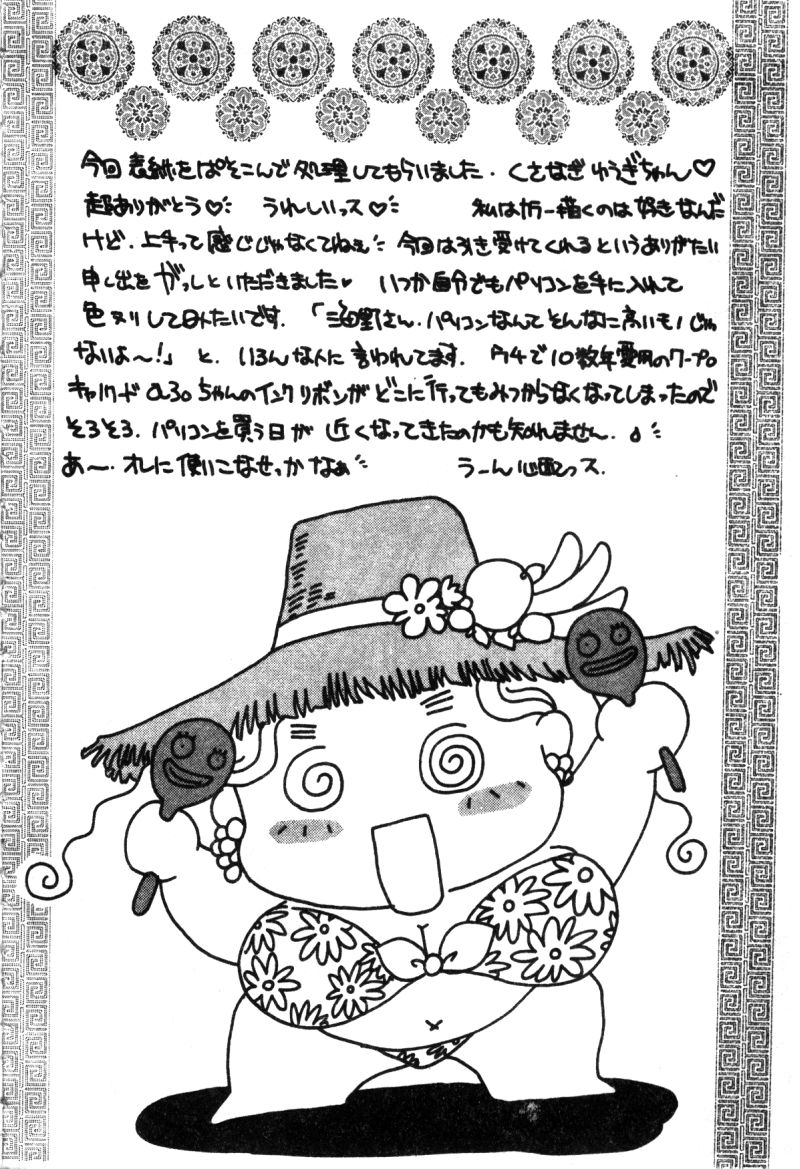 今回表紙をぱそこんで処理してもらいました. くさなぎゆうぎちゃん♡
超ありがとう♡ うれしいっス♡ 私はカラー描くのは好きなんだ
けど. 上手って感じじゃなくてねぇ 今回は引き受けてくれるというありがたい
申し出をがっしといただきました♥ いつか自分でもパソコンを手に入れて
色ヌリしてみたいです. 「さん. パソコンなんてそんなに高いもんじゃ
ないよ〜!」と. いろんな人に言われてます. 内で10数年愛用のワープロ
キャノワード α30ちゃんのインクリボンがどこに行ってもみつからなくなってしまったので
そろそろ. パソコンを買う日が近くなってきたのかも知れません. ♪
あ〜. オレに使いこなせっかなぁ うーん心配っス.